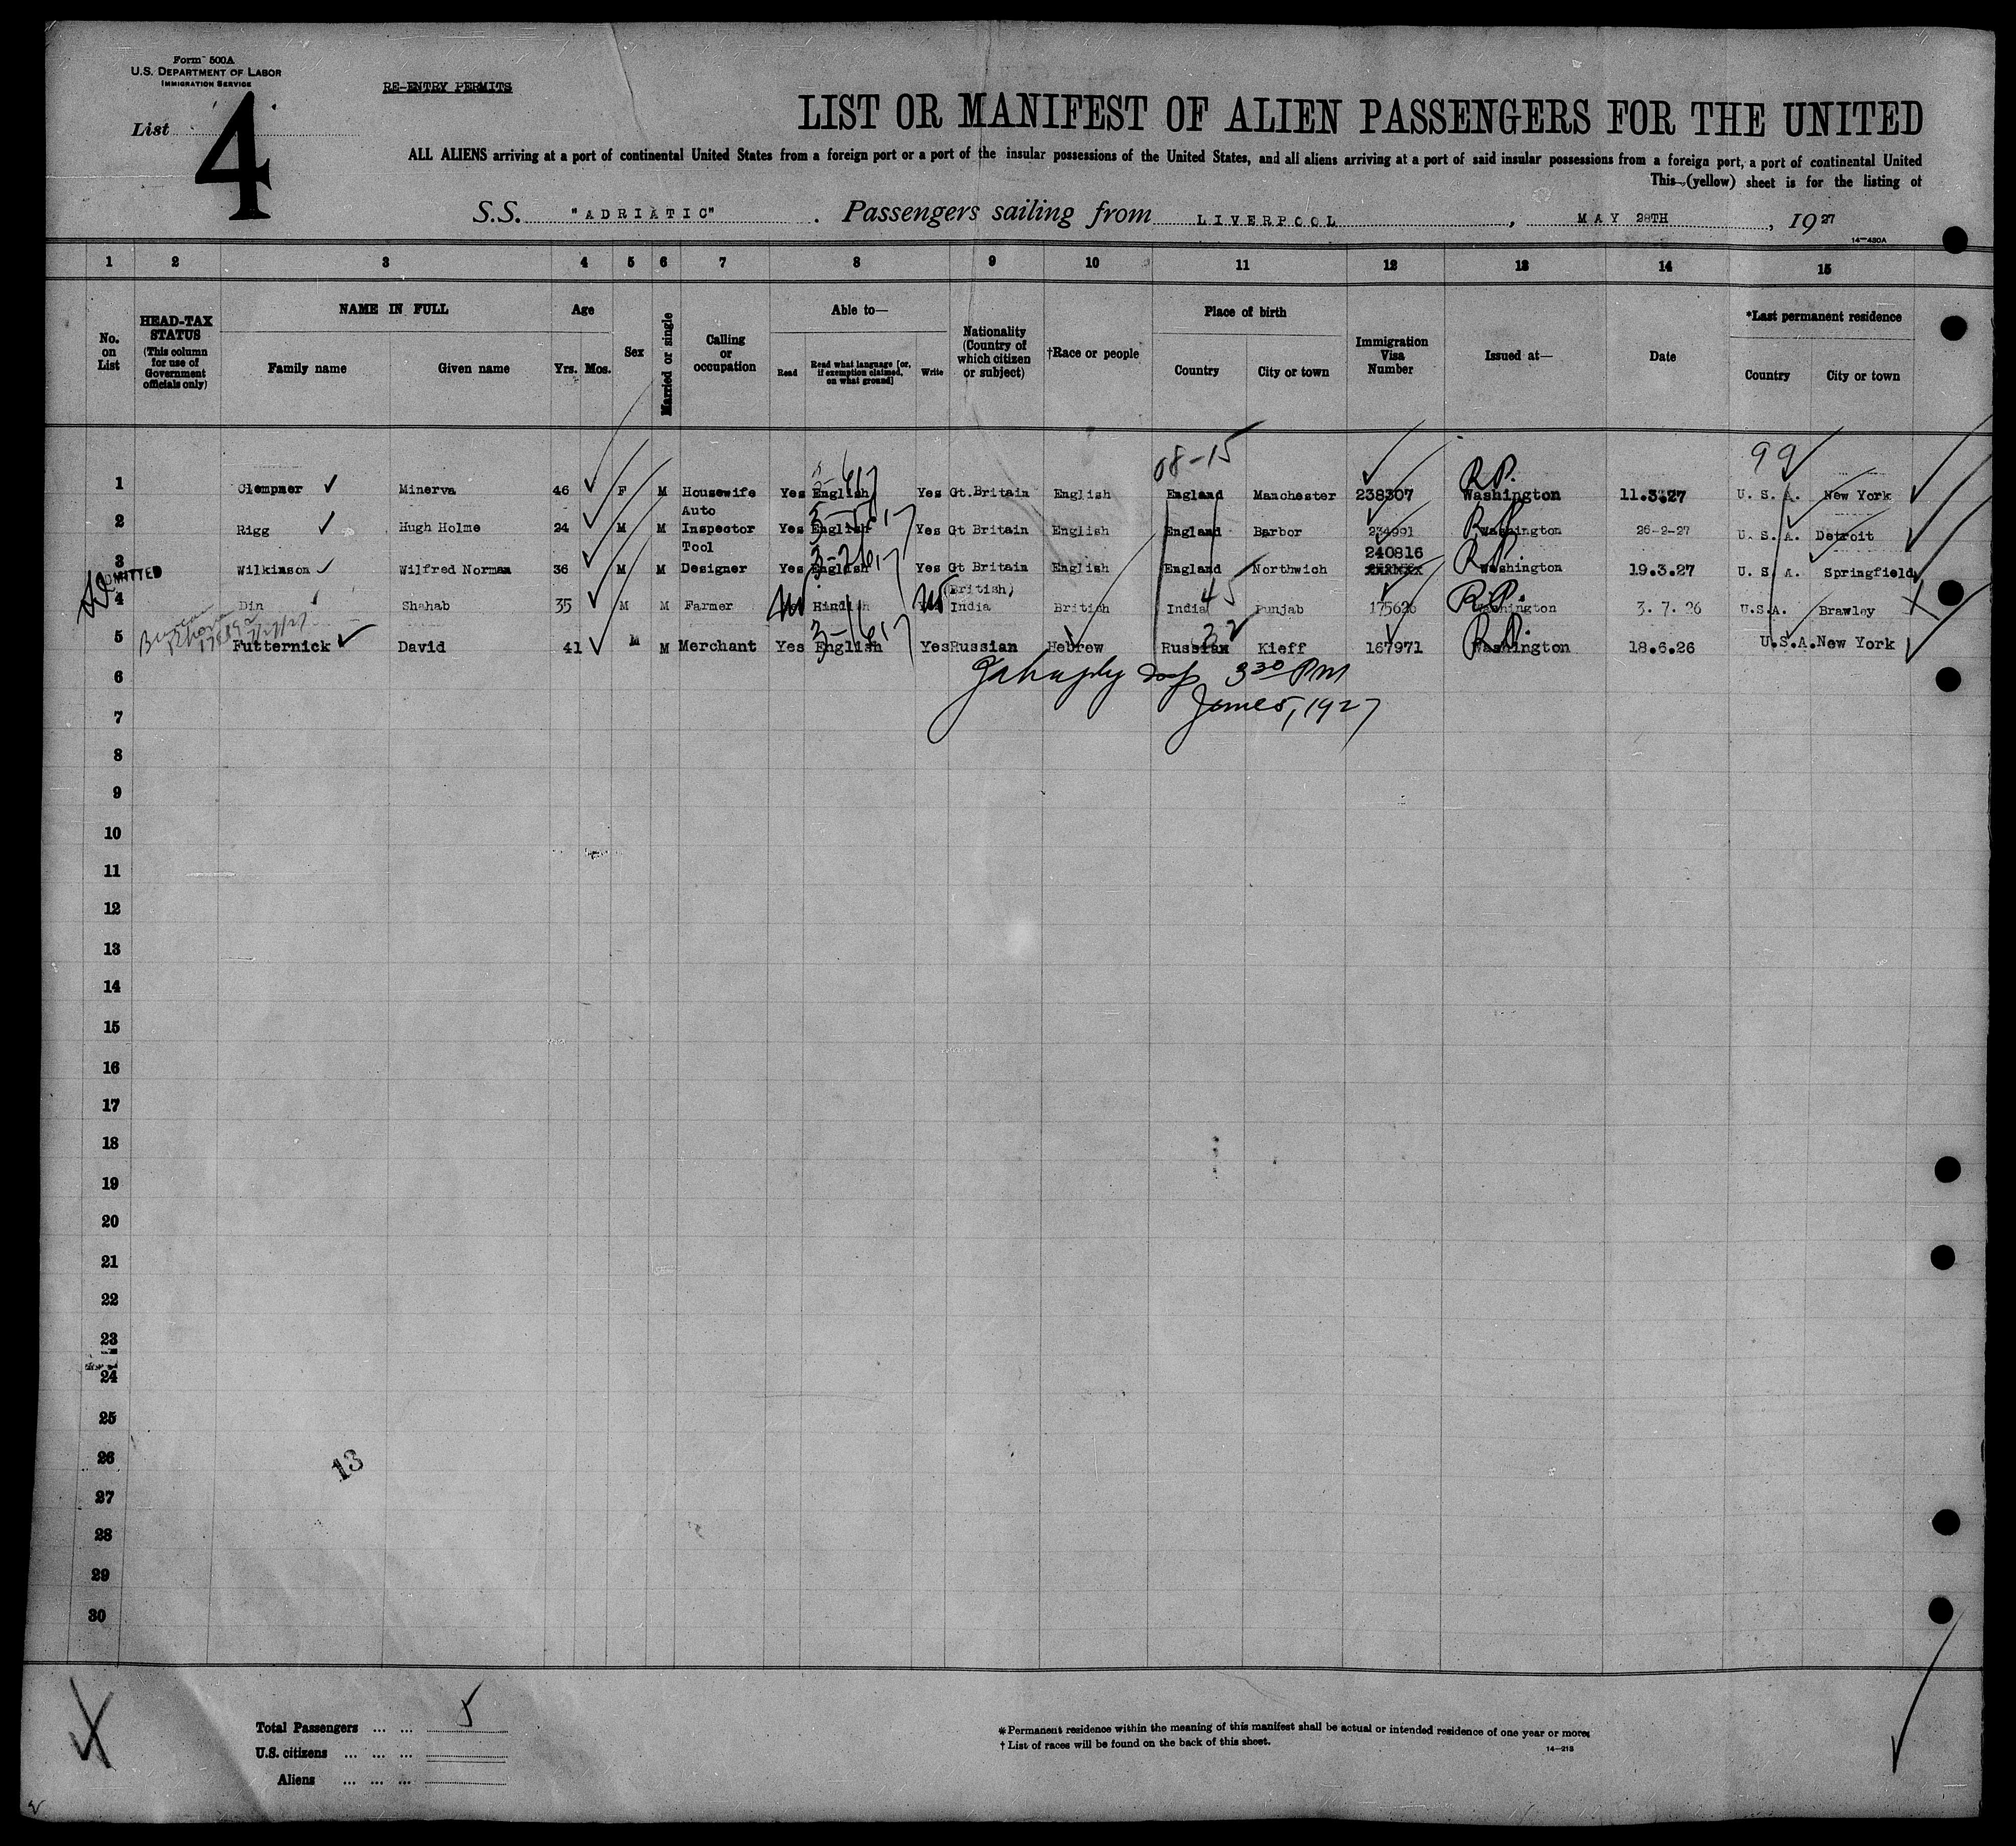 Form 500A
U.S. DEPARTMENT OF LABOR
IMMIGRATION SERVICE
RE-ENTRY PERMITS
List 4
LIST OR MANIFEST OF ALIEN PASSENGERS FOR THE UNITED
ALL ALIENS arriving at a port of continental United States from a foreign port or a port of the insular possessions of the United States, and all aliens arriving at a port of said insular possessions from a foreign port, a port of continental United
This (yellow) sheet is for the listing of
S.S. "ADRIATIC" . Passengers sailing from LIVERPOOL, MAY 28TH, 1927
14—430A
1 2 3 4 5 6 7 8 9 10 11 12 13 14 15
No. on List
HEAD-TAX STATUS
(This column for use of Government officials only)
NAME IN FULL
Family name Given name
Age
Yrs. Mos.
Sex
Married or single
Calling or occupation
Able to—
Read Read what language [or, if exemption claimed, on what ground] Write
Nationality (Country of which citizen or subject)
†Race or people
Place of birth
Country City or town
Immigration Visa Number
Issued at—
Date
*Last permanent residence
Country City or town
08-15 99
R.P.
1 Clempner Minerva 46 F M Housewife Yes English Yes Gt.Britain English England Manchester 238307 Washington 11.3.27 U. S. A. New York
2 Rigg Hugh Holme 24 M M Auto Inspector Yes English Yes Gt Britain English England Barbor 234991 Washington 26-2-27 U. S. A. Detroit
240816
3 Wilkinson Wilfred Norman 36 M M Tool Designer Yes English Yes Gt Britain English England Northwich Washington 19.3.27 U. S. A. Springfield
ADMITTED
4 Din Shahab 35 M M Farmer No Hindish No (British) India British India Punjab 175626 R.P. Washington 3. 7. 26 U.S.A. Brawley
5 Futternick David 41 M M Merchant Yes English Yes Russian Hebrew Russian Kieff 167971 Washington 18.6.26 U.S.A. New York
3 30 PM
June 5, 1927
6
7
8
9
10
11
12
13
14
15
16
17
18
19
20
21
22
23
24
25
26
13
27
28
29
30
Total Passengers ... ... 5
U.S. citizens ... ... ...
Aliens ... ... ...
*Permanent residence within the meaning of this manifest shall be actual or intended residence of one year or more.
† List of races will be found on the back of this sheet.
14—213